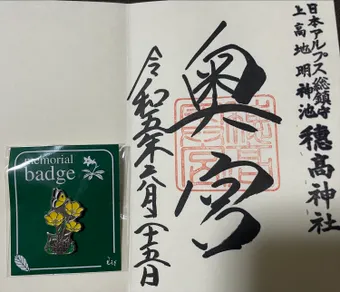 日本アルプス総鎮守
上高地明神池
穂高神社
奥宮
令和五年六月二十五日
memorial
badge